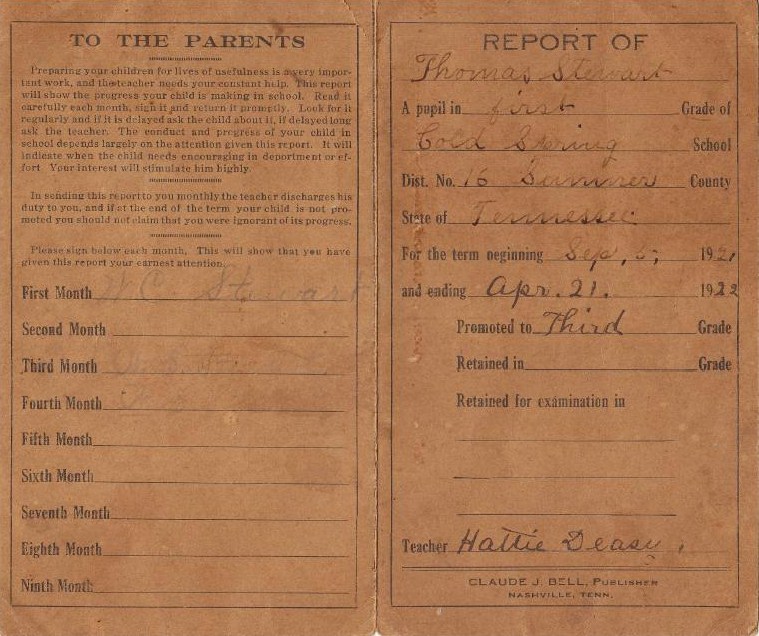 TO THE PARENTS
Preparing your children for lives of usefulness is a very impor-
tant work, and the teacher needs your constant help. This report
will show the progress your child is making in school. Read it
carefully each month, sign it and return it promptly. Look for it
regularly and if it is delayed ask the child about it, if delayed long
ask the teacher. The conduct and progress of your child in
school depends largely on the attention given this report. It will
indicate when the child needs encouraging in deportment or ef-
fort. Your interest will stimulate him highly.
In sending this report to you monthly the teacher discharges his
duty to you, and if at the end of the term your child is not pro-
moted you should not claim that you were ignorant of its progress.
Please sign below each month. This will show that you have
given this report your earnest attention.
First Month W C Stewart
Second Month
Third Month
Fourth Month
Fifth Month
Sixth Month
Seventh Month
Eighth Month
Ninth Month
REPORT OF
Thomas Stewart
A pupil in first Grade of
Cold Spring School
Dist. No. 16 Sumner County
State of Tennessee
For the term neginning Sep, 5, 1921
and ending Apr. 21. 1922
Promoted to Third Grade
Retained in Grade
Retained for examination in
Teacher Hattie Deasy.
CLAUDE J. BELL, PUBLISHER
NASHVILLE, TENN.